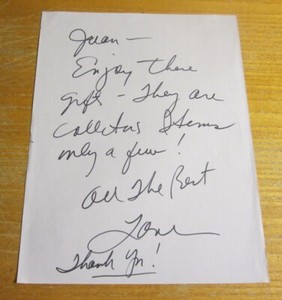 Juan –
Enjoy these
gifts – They are
Collectors Items
only a few!
All The Best
Thank You!